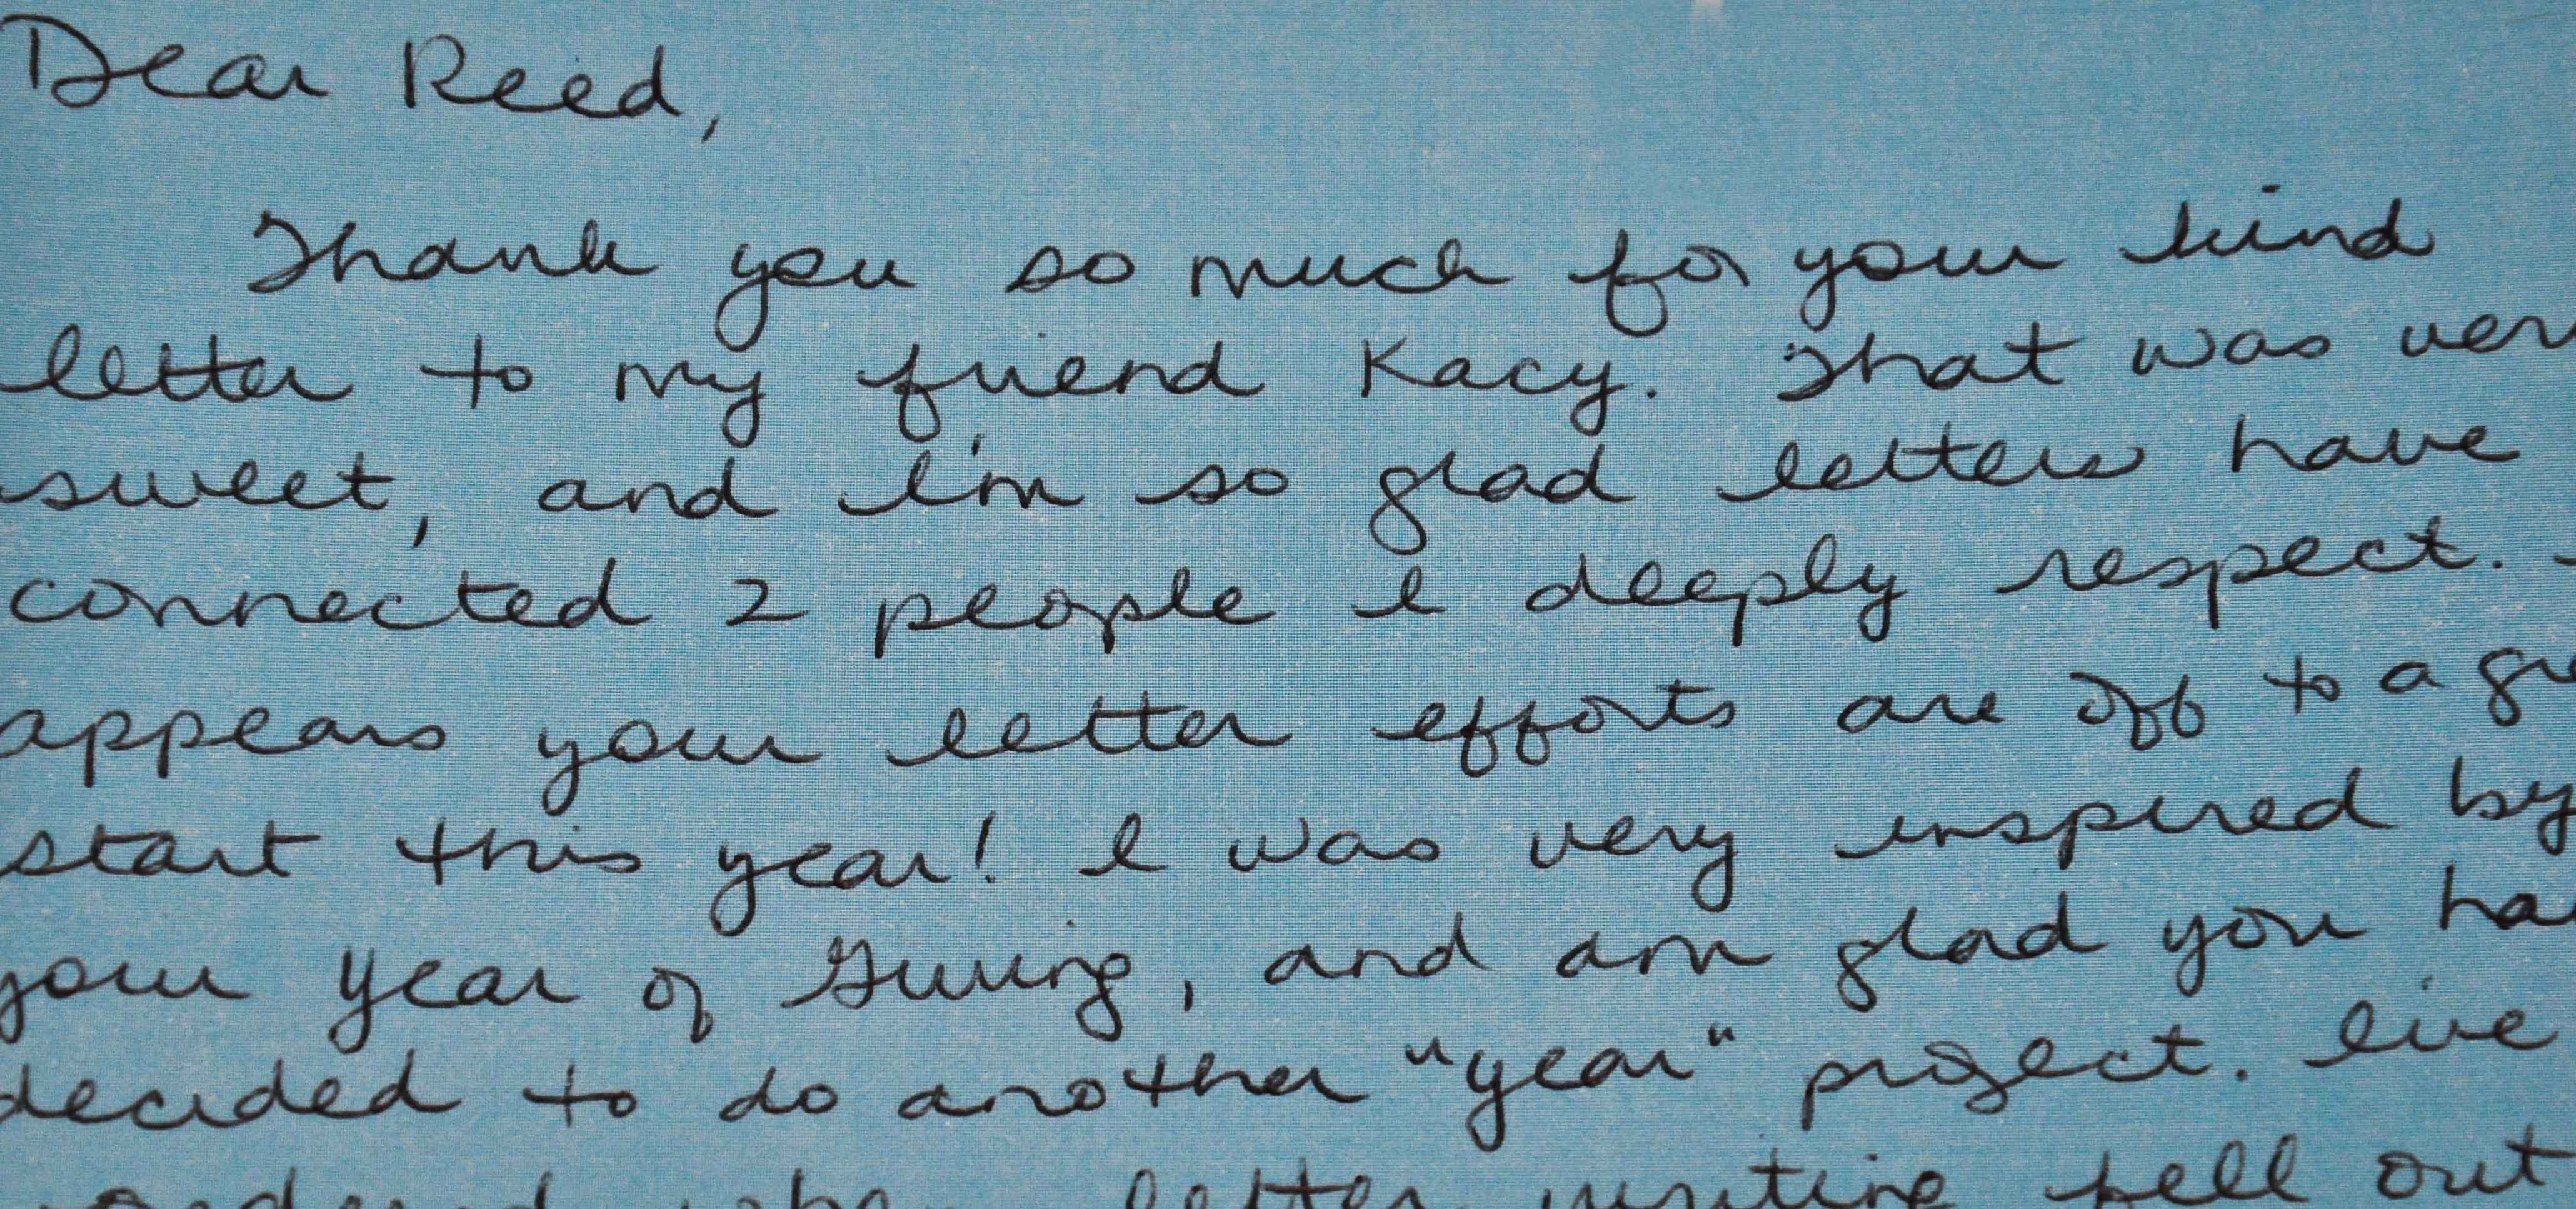 Dear Reed,
Thank you so much for your kind
letter to my friend Kacy. That was ver
sweet, and I'm so glad letters have
connected 2 people I deeply respect.
appears your letter efforts are off to a gr
start this year! I was very inspired by
your Year of Giving, and am glad you ha
decided to do another "year" project. I've
letter writing fell out